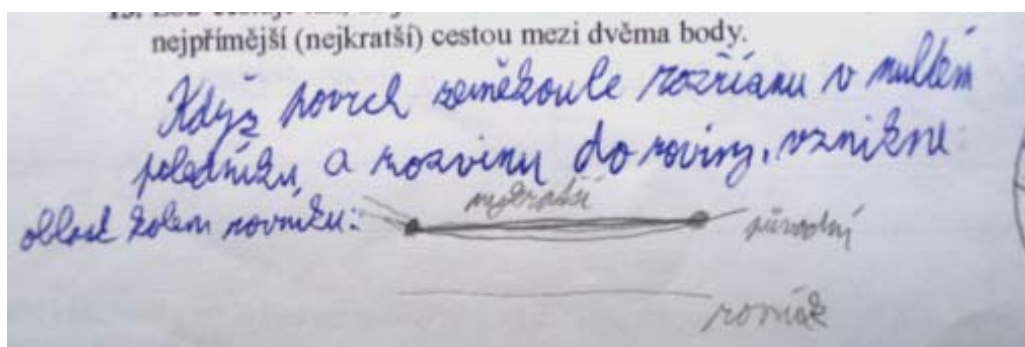 nejpřímější (nejkratší) cestou mezi dvěma body.
Když povrch zeměkoule rozříznu v nultém
poledníku, a rozvinu do roviny, vznikne
oblast kolem rovníku: nejkratší
původní
rovník